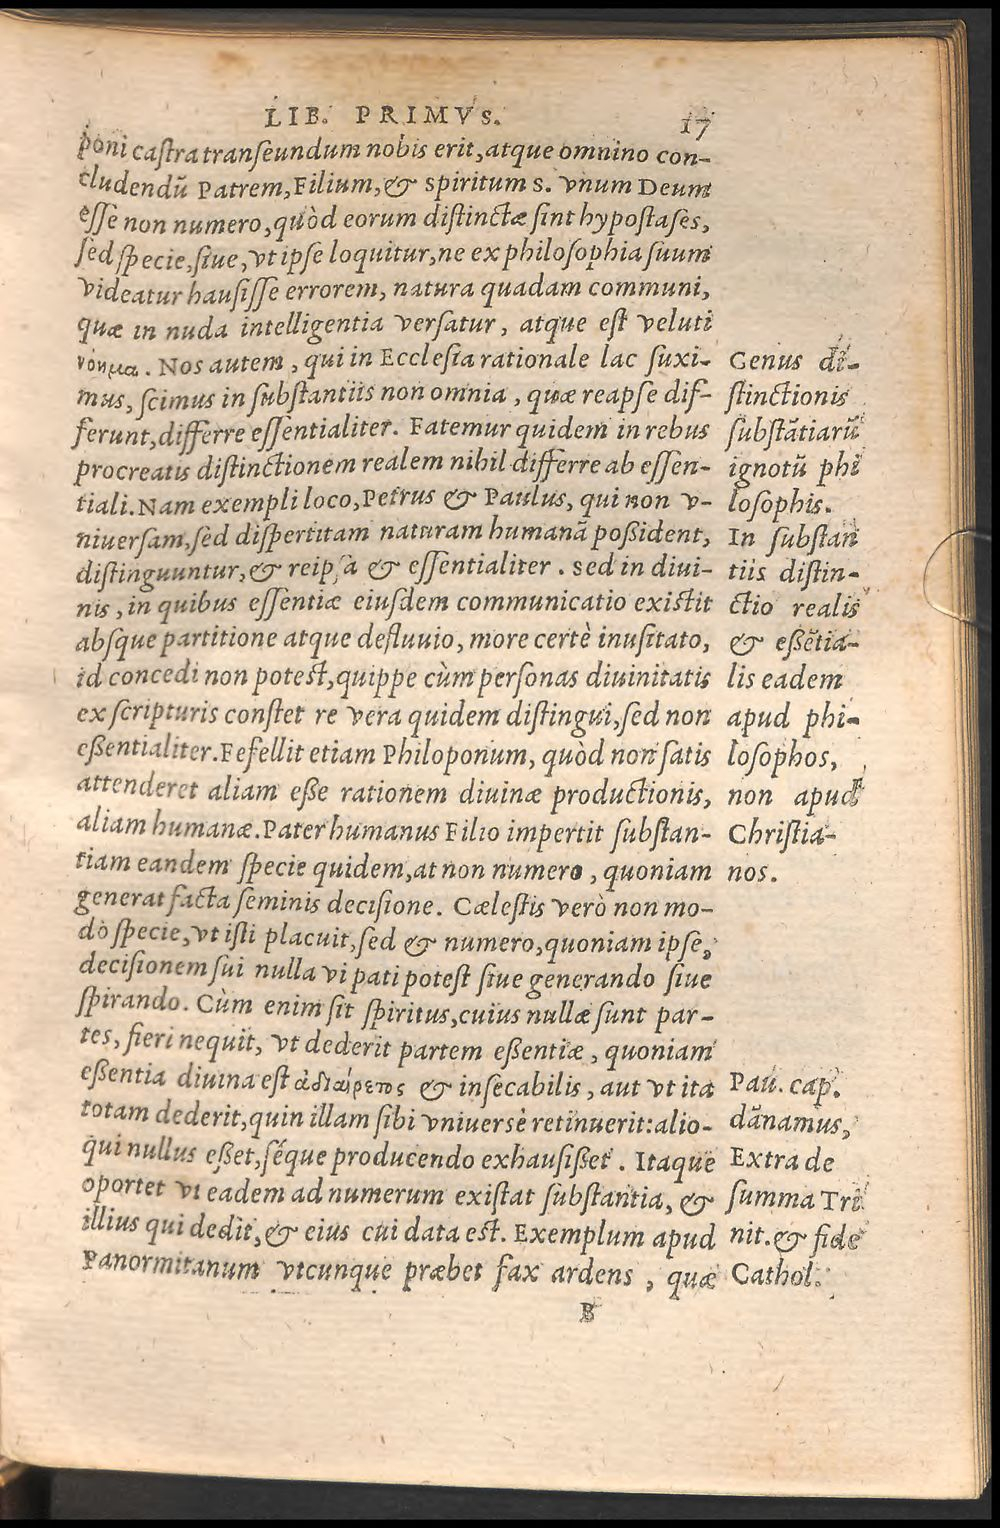 LIB. PRIMVS.
17
poni castra transeundum nobis erit, atque omnino con-
cludendũ Patrem, Filium, & Spiritum S. vnum Deum
esse non numero, quòd eorum distinctæ sint hypostases,
sed specie, siue, vt ipse loquitur, ne ex philosophia suum
videatur hausisse errorem, natura quadam communi,
quæ in nuda intelligentia versatur, atque est veluti
νόημα. Nos autem, qui in Ecclesia rationale lac suxi-
mus, scimus in substantiis non omnia, quæ reapse dif-
ferunt, differre essentialiter. Fatemur quidem in rebus
procreatis distinctionem realem nihil differre ab essen-
tiali. Nam exempli loco, Petrus & Paulus, qui non v-
niuersam, sed dispertitam naturam humanã poßident,
distinguuntur, & reipsa & essentialiter. Sed in diui-
nis, in quibus essentiæ eiusdem communicatio existit
absque partitione atque defluuio, more certè inusitato,
id concedi non potest, quippe cùm personas diuinitatis
ex scripturis constet re vera quidem distingui, sed non
eßentialiter. Fefellit etiam Philoponum, quòd non satis
attenderet aliam eße rationem diuinæ productionis,
aliam humanæ. Pater humanus Filio impertit substan-
tiam eandem specie quidem, at non numero, quoniam
generat facta seminis decisione. Cælestis verò non mo-
dò specie, vt isti placuit, sed & numero, quoniam ipse,
decisionem sui nulla vi pati potest siue generando siue
spirando. Cùm enim sit spiritus, cuius nullæ sunt par-
tes, fieri nequit, vt dederit partem eßentiæ, quoniam
eßentia diuina est ἀδιαίρετος & insecabilis, aut vt ita
totam dederit, quin illam sibi vniuersè retinuerit: alio-
qui nullus eßet, séque producendo exhausißet. Itaque
oportet vt eadem ad numerum existat substantia, &
illius qui dedit, & eius cui data est. Exemplum apud
Panormitanum vtcunque præbet fax ardens, quæ
Genus di-
stinctionis
substãtiarũ
ignotũ phi
losophis.
In substan
tiis distin-
ctio realis
& eßẽtia-
lis eadem
apud phi-
losophos,
non apud
Christia-
nos.
Pau. cap.
dãnamus,
Extra de
summa Tri
nit. & fide
Cathol.
B